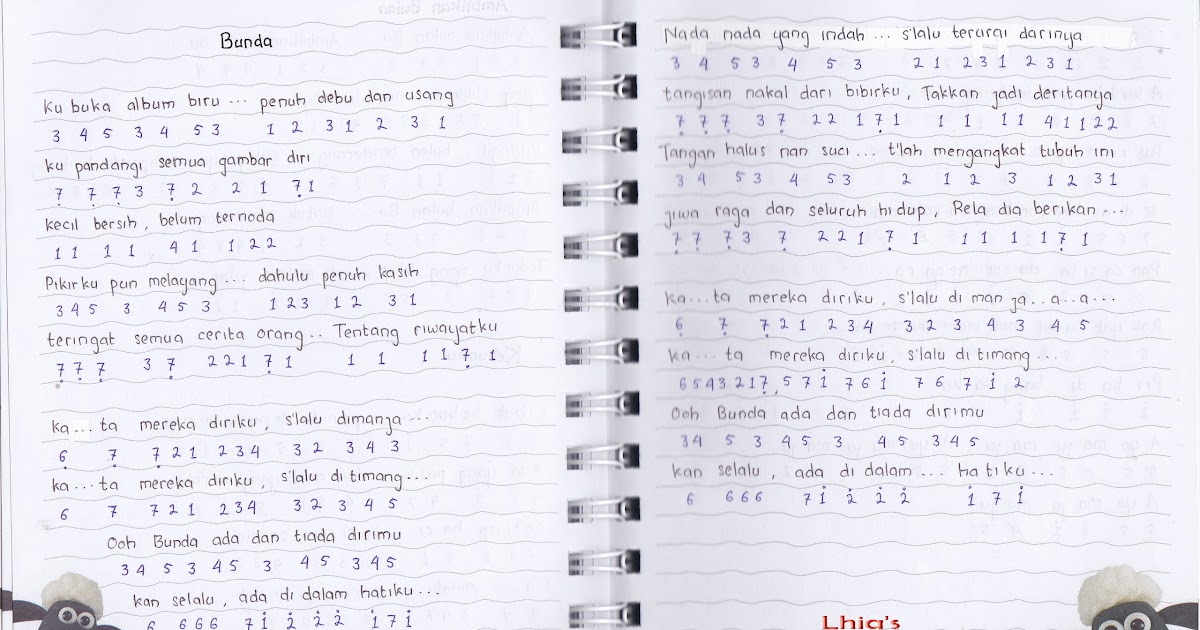 Bunda
Ku buka album biru ... penuh debu dan usang
3 4 5 3 4 5 3 1 2 3 1 2 3 1
ku pandangi semua gambar diri
7̣ 7̣ 7̣ 3 7̣ 2 2 1 7̣ 1
kecil bersih, belum ternoda
1 1 1 1 4 1 1 2 2
Pikirku pun melayang ... dahulu penuh kasih
3 4 5 3 4 5 3 1 2 3 1 2 3 1
teringat semua cerita orang .. Tentang riwayatku
7̣ 7̣ 7̣ 3 7̣ 2 2 1 7̣ 1 1 1 1 1 7̣ 1
ka...ta mereka diriku, s'lalu dimanja ...
6̣ 7̣ 7̣ 2 1 2 3 4 3 2 3 4 3
ka...ta mereka diriku, s'lalu di timang ...
6 7 7 2 1 2 3 4 3 2 3 4 5
Ooh Bunda ada dan tiada dirimu
3 4 5 3 4 5 3 4 5 3 4 5
kan selalu, ada di dalam hatiku ...
6 6 6 6 7 1̇ 2̇ 2̇ 2̇ 1̇ 7 1̇
Nada nada yang indah ... s'lalu terurai darinya
3 4 5 3 4 5 3 2 1 2 3 1 2 3 1
tangisan nakal dari bibirku, Takkan jadi deritanya
7̣ 7̣ 7̣ 3 7̣ 2 2 1 7̣ 1 1 1 1 1 4 1 1 2 2
Tangan halus nan suci ... t'lah mengangkat tubuh ini
3 4 5 3 4 5 3 2 1 2 3 1 2 3 1
jiwa raga dan seluruh hidup, Rela dia berikan ...
7̣ 7̣ 7̣ 3 7̣ 2 2 1 7̣ 1 1 1 1 1 7̣ 1
ka...ta mereka diriku, s'lalu di man ja..a..a...
6̣ 7̣ 7̣ 2 1 2 3 4 3 2 3 4 3 4 5
ka...ta mereka diriku, s'lalu di timang ...
6 5 4 3 2 1 7̣, 5 7 1̇ 7 6 1̇ 7 6 7 1̇ 2
Ooh Bunda ada dan tiada dirimu
3 4 5 3 4 5 3 4 5 3 4 5
kan selalu, ada di dalam ... hatiku ...
6 6 6 6 7 1̇ 2̇ 2̇ 2̇ 1̇ 7 1̇
Lhia's